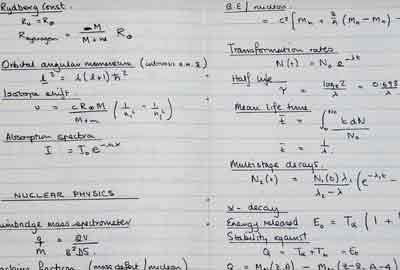 Rydberg Const.
R∞ = R∞
R hydrogen = M / M+m R∞
Orbital angular momentum
l² = l(l+1)ħ²
Isotope shift.
υ = cR∞M / M+m (1/n² - 1/n²)
Absorption spectra
I = I₀e
NUCLEAR PHYSICS
mass spectrometer
q/M =
fraction (mass defect / nucleon)
B.E / nucleon
= c² [Mn + Z/A (MH - Mn) -
Transformation rates
N(t) = N₀ e^-λt
Half life
τ = loge2 / λ = 0.693 / λ
Mean life time
t̄ = ∫ t dN / N₀
t̄ = 1/λ
Multistage decays.
N₂(t) = N₁(0)λ₁ / λ₂ - λ₁ (e^-λ₁t -
α - decay
Energy released E₀ = Tα (1 +
Stability against
Q = Tα + Tb = E₀
Q = (Z,A) - (Z-2, A-4)